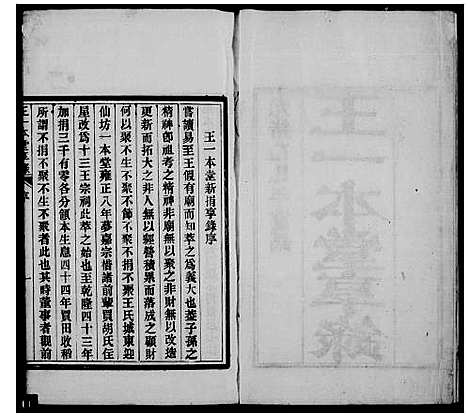 王一本堂新捐享錄序
嘗讀易至王假有廟而知萃之為義大也蓋子孫之
精神卽祖考之精神非廟無以萃之非財無以改造
更新而拓大之非人無以經營積累而落成之顧財
何以聚不生不聚不節不聚不捐不聚王氏城東迎
仙坊一本堂雍正八年夢嘉宗偕諸前輩買胡氏住
屋改為十三王宗祠此萃之始也至乾隆四十三年
加捐三千有零各分領本生息四十四年買田收稻
所謂不捐不聚不生不聚者此也其時董事者觀前
王一本堂享錄
序
一
王一本堂享錄